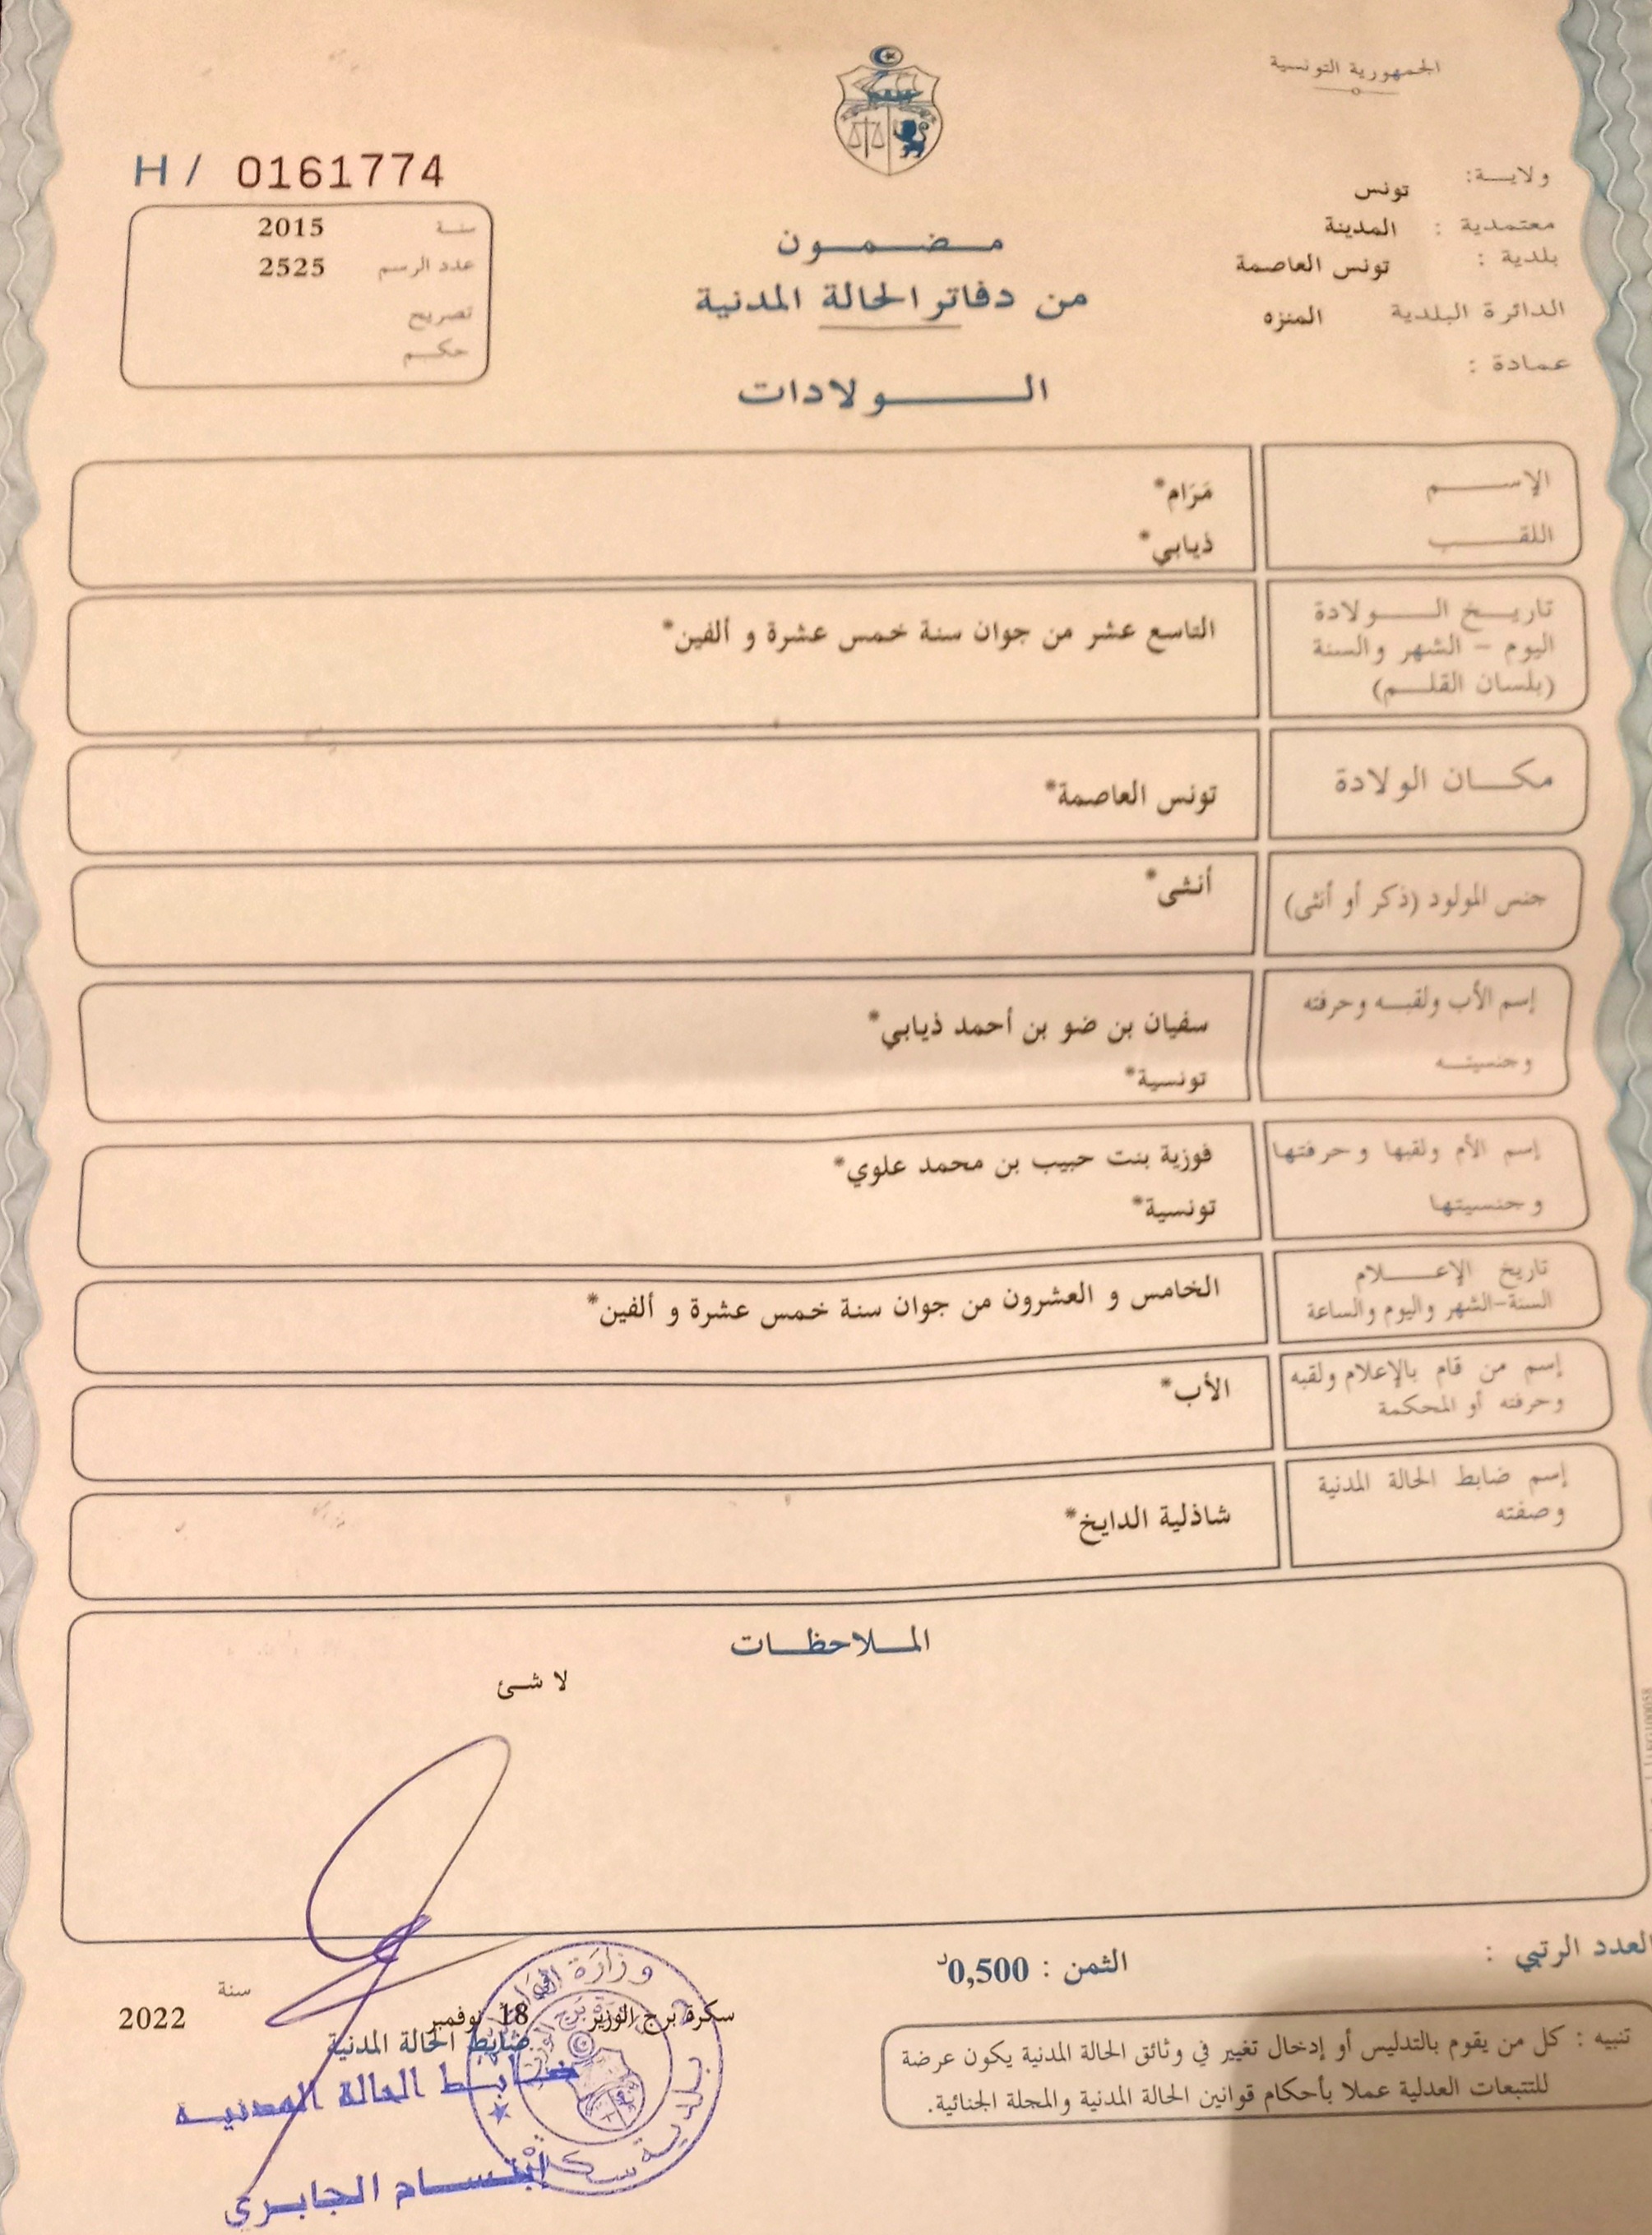 الجمهورية التونسية
ولايـــة: تونس
معتمدية : المدينة
بلدية : تونس العاصمة
الدائرة البلدية المنزه
عمادة :
H / 0161774
سنـــة 2015
عدد الرسم 2525
تصريح
حكـــم
مـضـمـــون
من دفاتر الحالة المدنية
الـــــولادات
الإســــم
مَرَام*
اللقــــب
ذيابي*
تاريـــخ الـــولادة
اليوم - الشهر والسنة
(بلسان القلـــم)
التاسع عشر من جوان سنة خمس عشرة و ألفين*
مكـــان الولادة
تونس العاصمة*
جنس المولود (ذكر أو أنثى)
أنثى*
إسم الأب ولقبـــه وحرفته
وجنسيتـــه
سفيان بن ضو بن أحمد ذيابي*
تونسية*
إسم الأم ولقبها وحرفتها
وجنسيتها
فوزية بنت حبيب بن محمد علوي*
تونسية*
تاريخ الإعـــلام
السنة-الشهر واليوم والساعة
الخامس و العشرون من جوان سنة خمس عشرة و ألفين*
إسم من قام بالإعلام ولقبه
وحرفته أو المحكمة
الأب*
إسم ضابط الحالة المدنية
وصفته
شاذلية الدايخ*
المـــلاحظـــات
لا شئ
العدد الرتبي :
الثمن : 0,500د
تنبيه : كل من يقوم بالتدليس أو إدخال تغيير في وثائق الحالة المدنية يكون عرضة
للتتبعات العدلية عملا بأحكام قوانين الحالة المدنية والمجلة الجنائية.
سكرة برج الوزير 18 نوفمبر سنة 2022
ضابط الحالة المدنية
ضـــابـــط الحالة المدنيـــة
إبتســـام الجابـــري
وزارة
بلدية سكرة
برج الوزير